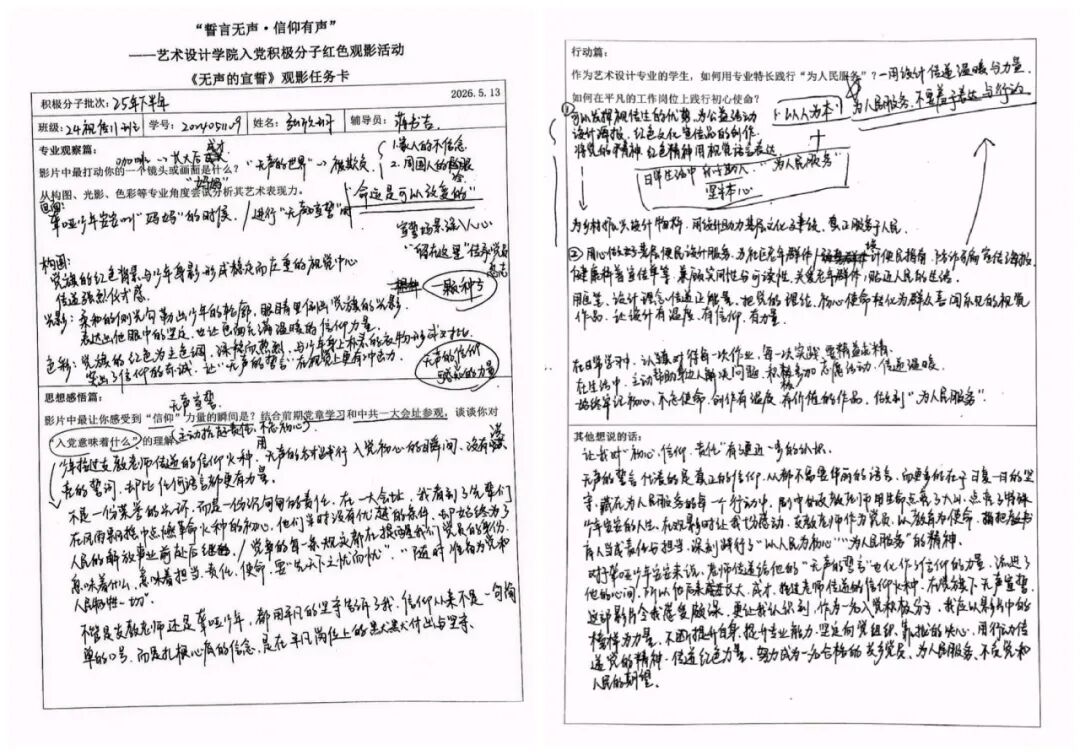 “誓言无声·信仰有声”
——艺术设计学院入党积极分子红色观影活动
《无声的宣誓》观影任务卡
积极分子批次：25年下半年 2026.5.13
班级：24视传 学号： 姓名： 辅导员：
专业观察篇：
影片中最打动你的一个镜头或画面是什么？
“无声的世界”→被欺负
1.家人的不信念
2.周围人的
从构图、光影、色彩等专业角度尝试分析其艺术表现力。
“命运是可以改变的”
聋哑少年安安叫“妈妈”的时候，/进行“无声的宣誓”时
宣誓场景深入人心
“留在这里”
构图：
党旗的红色背景与少年身影形成稳定而庄重的视觉中心
传递强烈仪式感
一颗种子
光影：柔和的侧光勾勒出少年的轮廓，眼睛里倒出党旗的光影
表达出他眼中的坚定，也让画面充满温暖的信仰力量
色彩：党旗的红色为主色调，深稳而热烈，与少年身上朴素的衣物形成对比
突出了信仰的赤诚。让“无声的誓言”在视觉上更有冲击力。
无声的信仰
感知的力量
思想感悟篇：
无声宣誓
影片中最让你感受到“信仰”力量的瞬间是？结合前期党章学习和中共一大会址参观，谈谈你对
“入党意味着什么”的理解（主动担起责任，不忘初心）
少年接过支教老师传递的信仰火种，用无声的方式践行入党初心的瞬间，没有
的誓词，却比任何语言都更有力量
不是一份荣誉的头衔，而是一份沉甸甸的责任，在一大会址，我看到了先辈们
在风雨飘摇中点燃革命火种的初心，他们当时没有优越的条件，却始终为了
人民的解放事业前赴后继的。/党章的每一条规定都在提醒我们党员的身份
意味着什么，意味着担当、责任、使命，要“先天下之忧而忧”、“随时准备为党和
人民牺牲一切”。
不管是支教老师还是聋哑少年，都用平凡的坚守告诉了我，信仰从来不是一句简
单的口号，而是扎根心底的信念，是在平凡岗位上的点点付出与坚守。
行动篇：
作为艺术设计专业的学生，如何用专业特长践行“为人民服务”？—用设计传递温暖与力量
如何在平凡的工作岗位上践行初心使命？
“以人为本”
为人民服务，不要羞于表达与行动
①可以发挥视传生的优势，为公益活动
设计海报、红色文化宣传品的创作
将党的精神、红色精神用视觉语言表达
+
日常生活中 乐于助人、“为人民服务”
坚守本心
为乡村振兴设计物料，用设计助力基层文化建设，真正服务于人民。
②用心做好基层便民设计服务，为社区老年群体设计便民指南、防诈骗宣传海报
健康科普宣传单等，兼顾实用性与可读性，关爱老年群体，贴近人民的生活。
用匠笔，设计理念传递正能量，把党的理论、初心使命转化为群众喜闻乐见的视觉
作品，让设计有温度、有信仰、有力量。
在日常学习中，认真对待每一次作业，每一次实践，要精益求精。
在生活中，主动帮助身边人解决问题，积极参加志愿活动，传递温暖。
始终牢记初心，不忘使命，创作有温度、有价值的作品，做到“为人民服务”。
其他想说的话：
让我对“初心，信仰，责任”有了进一步的认识。
无声的誓言传递的是真正的信仰，从都不需要华丽的语言，而更多的在于日复一日的坚
守，藏在为人民服务的每一个行动中，剧中的支教老师用生命点亮了大山，点亮了特殊
少年安安的人生，在观影时让我十分感动，支教老师作为党员，以教育为使命，
育人当成责任与担当，深刻践行了“以人民为初心”“为人民服务”的精神。
对于聋哑少年安安来说，老师传递给他的“无声的誓言”也化作了对信仰的力量，流进了
他的心间，所以他后来长大、成才，接过老师传递的信仰火种，在党旗下无声宣誓。
这部影片令我感受颇深，更让我认识到，作为一名入党积极分子，我应以影片中的
榜样为力量，不断提升自身，提升专业能力，坚定向党组织靠拢的决心，用行动传
递党的精神，传递红色力量，努力成为一名合格的共产党员，为人民服务，不负党和
人民的期望。